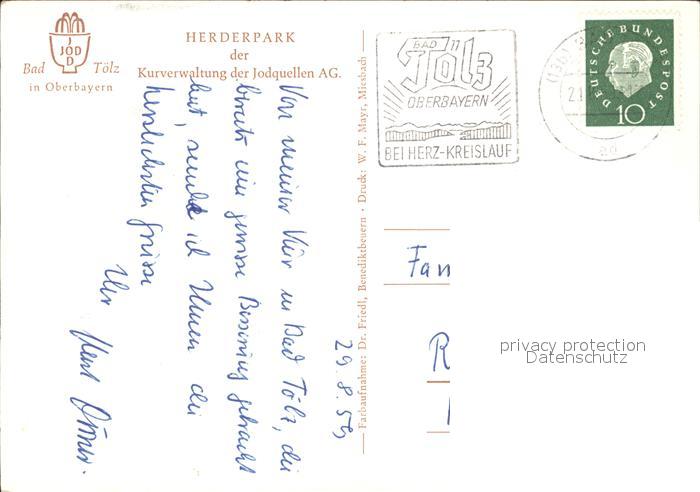 JOD
Bad Tölz
in Oberbayern
HERDERPARK
der
Kurverwaltung der Jodquellen AG.
Von meiner Kur in Bad Tölz, die
bereits eine gewisse Besserung gebracht
hat, sende ich Ihnen die
herzlichsten Grüsse
Ihr
29.8.59
Farbaufnahme: Dr. Friedl, Benediktbeuern · Druck: W. F. Mayr, Miesbach
BAD
Tölz
OBERBAYERN
BEI HERZ-KREISLAUF
(13b)
DEUTSCHE BUNDESPOST
10
Fam
R
privacy protection
Datenschutz